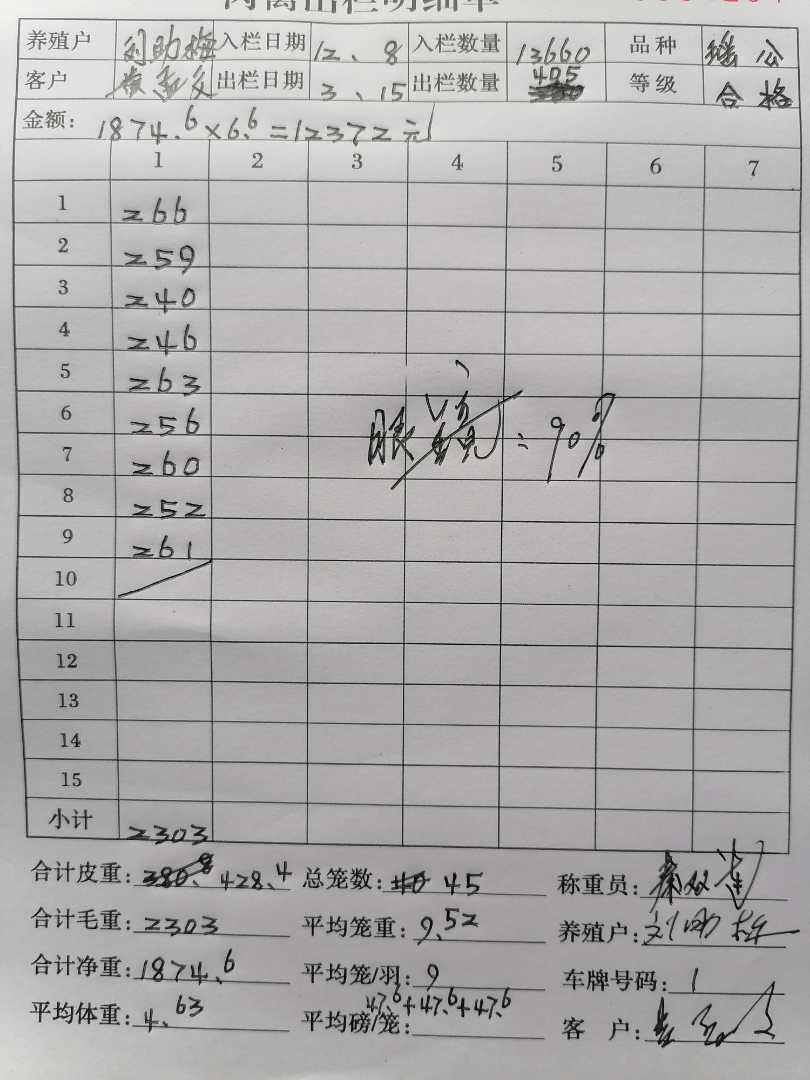 养殖户 刘助梅 入栏日期 12、8 入栏数量 13660 品种 公
客户 出栏日期 3、15 出栏数量 405 等级 合格
金额: 1874.6×6.6=12372元
1 2 3 4 5 6 7
1 266
2 259
3 240
4 246
5 263
6 256
7 260
8 252
9 261
10
11
12
13
14
15
眼镜=90%
小计 2303
合计皮重: 380.8 428.4 总笼数: 40 45 称重员:
合计毛重: 2303 平均笼重: 9.52 养殖户: 刘助梅
合计净重: 1874.6 平均笼/羽: 9 车牌号码: 1
平均体重: 4.63 平均磅/笼: 47.6+47.6+47.6 客户: